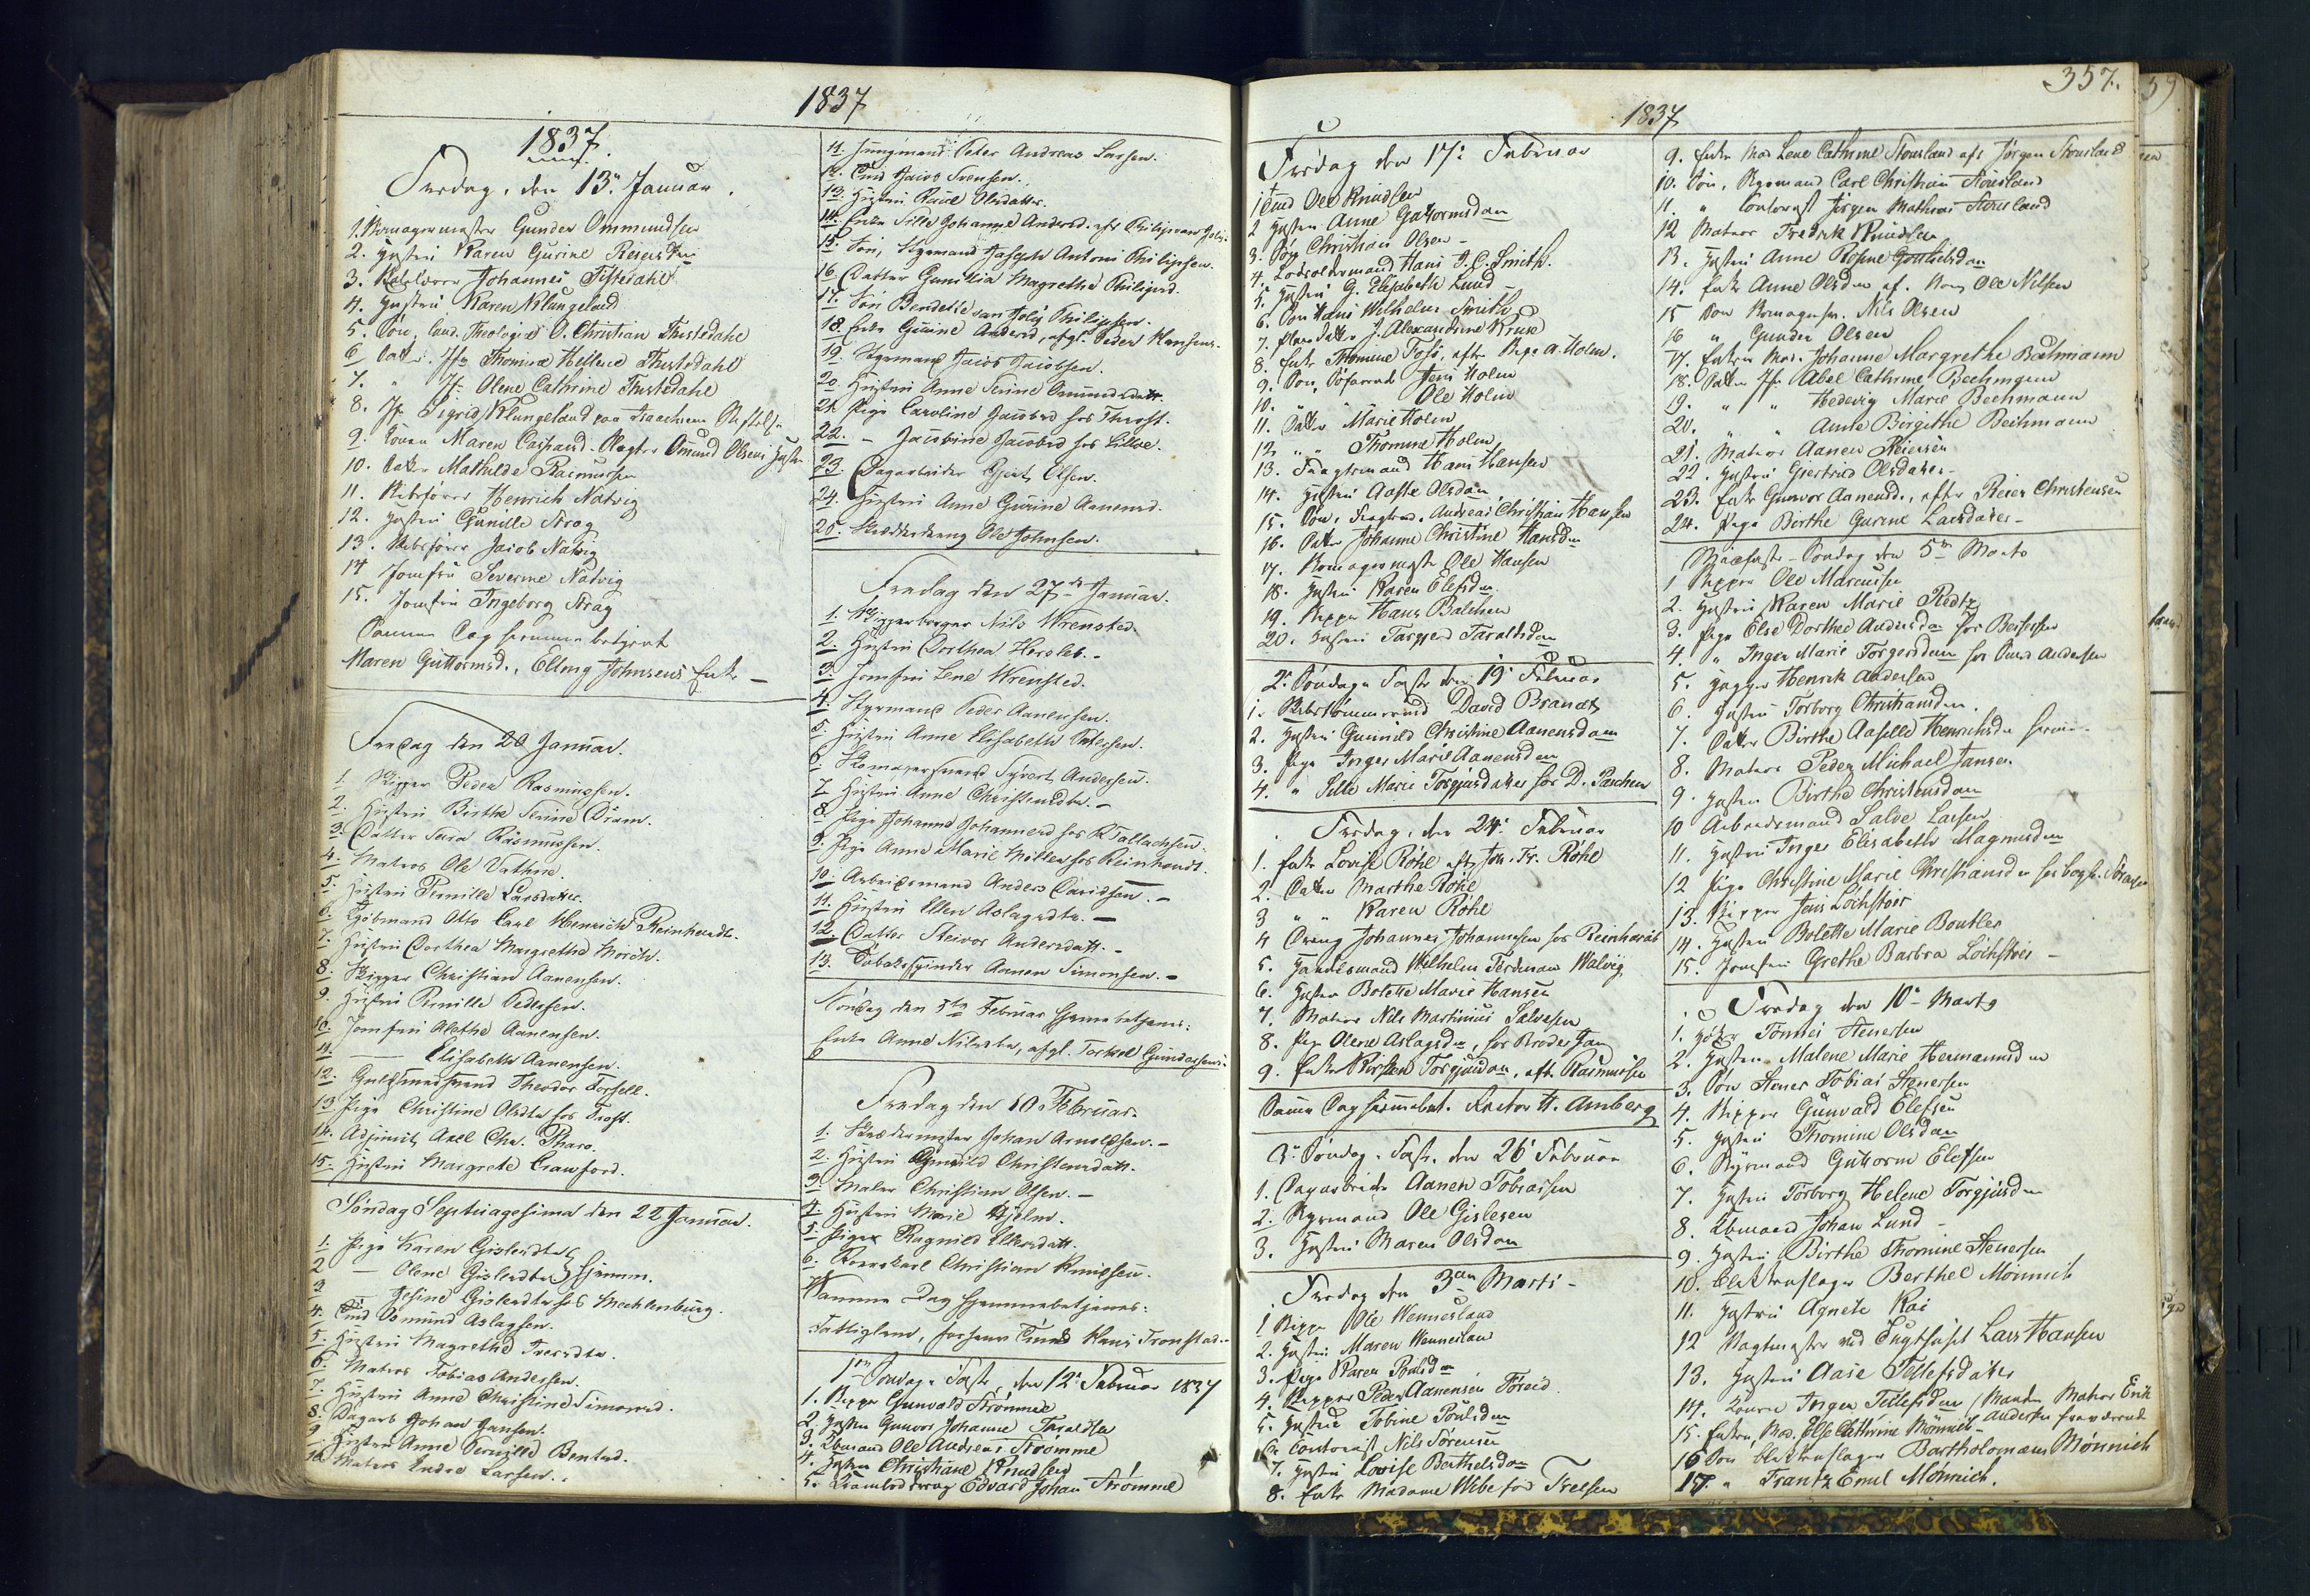 1837
1837.
Fredag, den 13de Januar.
1. Skomagermester Gunder Ommundsen
2. Hustru Karen Gurine
3. Johannes Tistedahl
4. Hustru Karen Klungeland
5. Søn, Cand. Theologie O. Christian Thistedahl
6. Datt. Jfr Thomine Hellene Thistedahl
7. " Jf. Olene Cathrine Thistedahl
8. Jf. Sigrid Klungeland paa
9. Konen Maren Omund Olsens Hustr.
10. Datter Mathilde Rasmussen
11. Henrich Natvig
12. Hustru Gunille Krag
13. Jacob Natvig
14 Jomfru Severine Natvig
15. Jomfru Ingeborg Krag
Samme Dag hjemme betjent
Maren Guttormsd., Elling Johnsens Enke —
Fredag den 20 Januar.
1. Skipper Peder Rasmussen.
2. Hustru Birthe Serine Dram.
3. Datter Sara Rasmussen.
4. Matros Ole Vathne.
5. Hustru Pernille Larsdatter.
6. Kjøbmand Otto Carl Henrich Reinhardt.
7. Hustru Dorthea Margrethe Mørch.
8. Skipper Christian Aanensen.
9. Hustru Pernille Pedersen.
10. Jomfru Alethe Aanensen.
11. — Elisabeth Aanensen.
12. Guldsmedsvend Theodor Forsell.
13. Pige Christine Olsdtr hos Trost.
14. Adjunct Axel Chr. Tharo.
15. Hustru Margrete Crawford.
Søndag Septuagesima den 22 Januar.
1. Pige Karen Gislesdtr
2 — Olene Gislesdtr hjemm.
3 — Gisledtr hos Mechlenburg.
4. Tind Osmund Aslagsen.
5. Hustru Magrethe
6. Matros Tobias Andersen.
7. Hustru Anne Christine Simonsd.
8. Dagarb. Johan Jansen.
9. Hustru Anne Bentsd.
10. Matros Endre Larsen.
11. Jungmand Peter Andreas Larsen.
12. Tind Jacob Svensen.
13. Hustru Olsdatter.
14. Enke Sille Johanne Andersd. eft Philip
15. Søn, Styrmand Joseph Antoni Philipsen.
16. Datter Gunilia Magrethe Philipsd.
17. Søn Bendette Philipsen.
18. Enke Gurine Andersd, afgl. Peder Hansens.
19. Styrmand Jacob Jacobsen.
20. Hustru Anne Serine Omundsdatr.
21. Pige Caroline Jacobsd hos Throst.
22. — Jacobine Jacobsd hos Lilloe.
23. Dagarbeider Gjert Olsen.
24. Hustru Anne Gurine Aanensd.
25. Skrædderdreng Ole Johnsen.
Fredag den 27de Januar.
1. Skipperborger Nils Wrensted.
2. Hustru Dorthea Hersleb. -
3. Jomfru Lene Wrensted.
4. Styrmand Peder Aanensen.
5. Hustru Anne Elisabeth Petersen.
6. Skomagersvend Syvert Andersen.
7. Hustru Anne Christensdtr. -
8. Pige Johanne Johannesd hos K. Tallachsen.
9. Pige Anne Marie Møller hos Reinhardt.
10. Arbeidsmand Anders Davidsen. -
11. Hustru Ellen Aslagsdtr. -
12. Datter Steivor Andersdatt. -
13. Tobakspinder Aanen Simonsen. -
Søndag den 5te Februar hjemmebetjent:
Enke Anne Nilsdtr, afgl. Torkel Gundersens.
Fredag den 10 Februar.
1. Skrædermester Johan Arnoldsen. -
2. Hustru Gunild Christensdatt.
3. Maler Christian Olsen. -
4. Hustru Marie Hjelm.
5. Pigen Ragnild Elevsdatt.
6. Christian Knudsen.
Samme Dag hjemmebetjenes:
Fattiglem, forhenv. Tind Hans Tronstad.
1ste Søndag i Faste, den 12te Februar 1837
1. Skipper Gunvald Strømme
2. Hustru Gunvor Johanne Taraldsdr
3. Ole Andreas Strømme
4. Hustru Christiane Knudsen
5. Krambodsvend Edvard Johan Strømme
357.
1837
Fredag den 17de Februar
1 Tind Ole Knudsen
2 Hustru Anne Guttormsdatr
3. Søn Christian Olsen -
4. Lodsoldermand Hans J. C. Smith.
5. Hustru G. Elisabeth Lund
6. Søn Hans Wilhelm Smith
7. Pleiedattr J. Alexandrine Kruse
8. Enke Thomine Fosø, efter Skipr A. Holm.
9. Søn, Søfarende Jens Holm
10. " " Ole Holm
11. Datter Marie Holm
12 " " Thomine Holm
13. Fragtemand Hans Hansen
14. Hustru Aaste Olsdatr
15. Søn, Andreas Christian Hansen
16. Datter Johanne Christine Hansdr
17. Skomagermester Ole Hansen
18. Hustru Karen Elefsdr
19. Skipper Hans Balchen
20. Hustru Targjer Taraldsdr
2. Søndag i Faste den 19de Februar
1. David Brandt
2. Hustru Gunnild Christine Aanensdatr
3. Pige Inger Marie Aanensdr
4. " Sille Marie Torgjusdatter hos D. Paschen
Fredag, den 24de Februar
1. Enke Lovise Röhl eftr Joh. Fr. Röhl
2. Datter Marthe Röhl
3 " " Karen Röhl
4 Dreng Johannes Johannesen hos Reinhardt
5. Handelsmand Wilhelm Ferdinan Walvig
6. Hustru Bolette Marie Hansen
7. Matros Nils Martinius Salvesen
8. Pige Olene Aslagsdr, hos Broder
9. Enke Kirsten Torgjusdr, eft. Rasmussen
Samme Dag hjemmebet. Rector H. Amberg
3. Søndag i Faste den 26de Februar
1. Dagarbeider Aanen Tobiassen
2. Styrmand Ole Gislesen
3. Hustru Maren Olsdatr
Fredag den 3die Marts -
1 Skipper Ole Wennesland
2. Hustru Maren Wennesland
3. Pige Karen Poulsdr
4. Skipper Peder Aanensen Föreid.
5. Hustru Tobine Poulsdr
6. Contorist Nils Sörensen
7. Hustru Lovise Berthelsdr
8. Enke Madame Wibe fød Trelsen
9. Enke Mad Lene Cathrine Stousland eft Jörgen Stousland
10. Søn, Styrmand Carl Christian Stousland
11. " Contorist Jörgen Mathias Stousland
12 Matros Fredrik Knudsen
13. Hustru Anne Rosine Gottliebsdr
14. Enke Anne Olsdr af. Ole Nilsen
15 Søn Skomagersv. Nils Olsen
16 " Gunder Olsen
17. Enken Mad. Johanne Margrethe Bechmann
18. Datter Jfr Abel Cathrine Bechmann
19. " " Hedevig Marie Bechmann
20. " " Anne Birgithe Bechmann
21. Matros Aanen Reiersen
22. Hustru Giertrud Olsdatter
23. Enke Gunvor Aanensd., efter Reier Christensen
24. Pige Birthe Gurine Larsdatter -
Midfaste-Søndag den 5te Marts
1 Skipper Ole Marcussen
2. Hustru Karen Marie Redtz
3. Pige Else Dorthea Andersdr hos
4. " Inger Marie Torgersdr hos Andersen
5. Henrik Andersen
6. Hustru Torborg Christiansdr.
7. Datter Birthe Aaselle Henriksdr hjemme
8. Matros Peder Michael Jansen
9. Hustru Birthe Christensdatr
10 Arbeidsmand Salve Larsen
11. Hustru Inger Elisabeth Magnusdr
12 Pige Christine Marie Christiansdr hos
13. Skipper Jens Löchstöer
14. Hustru Bolette Marie Boutler
15. Jomfru Grethe Barbra Löchstöer -
Fredag den 10de Marts
1. Tönnes Stenersen
2. Hustru Malene Marie Hermannsdr
3. Søn Stener Tobias Stenersen
4. Skipper Gunvald Elefsen
5. Hustru Thomine Olsdatr
6. Styrmand Guttorm Elefsen
7. Hustru Torborg Helene Torgjusdr
8. Johan Lund -
9. Hustru Birthe Thomine Stenersen
10. Blikkenslager Berthel Mönnich
11. Hustru Agnete Kai
12 Vagtmester ved Tugthuset Lars Hansen
13. Hustru Aase Tellefsdatter
14. Konen Inger Tellefsdr (Manden Matros Erik
Andersen fraværende
15. Enken, Mad. Else Cathrine Mönnich
16 Søn Blikkenslager Bartholomæus Mönnich
17. " Frantz Emil Mönnich.